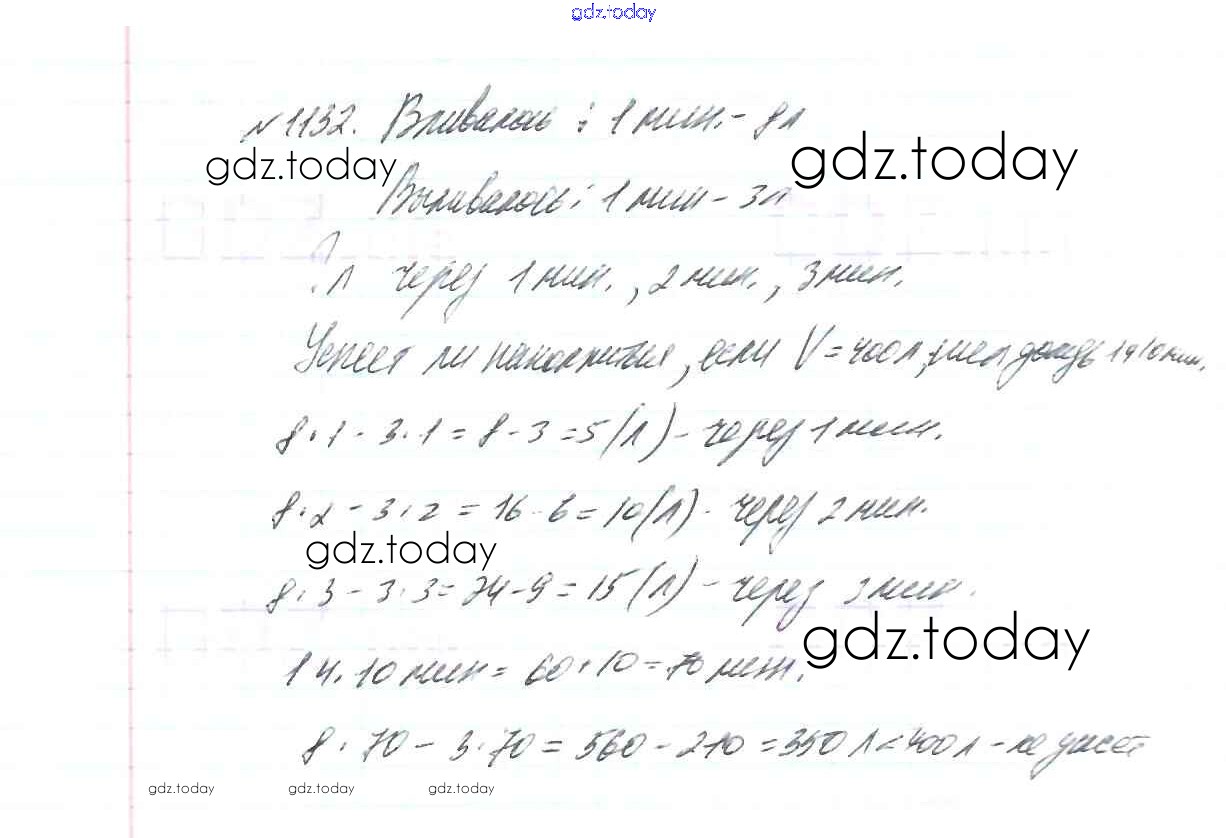 gdz.today
№1132. Вливалось : 1 мин. - 8л
gdz.today
gdz.today
Выливалось : 1 мин - 3л
? л через 1 мин., 2 мин., 3 мин.
Успеет ли наполниться, если V = 400л, шел дождь 1ч 10 мин.
8·1 - 3·1 = 8 - 3 = 5 (л) - через 1 мин.
8·2 - 3·2 = 16 - 6 = 10 (л) - через 2 мин.
gdz.today
8·3 - 3·3 = 24 - 9 = 15 (л) - через 3 мин.
gdz.today
1 ч. 10 мин = 60 + 10 = 70 мин.
8·70 - 3·70 = 560 - 210 = 350 л < 400 л - не успеет
gdz.today gdz.today gdz.today